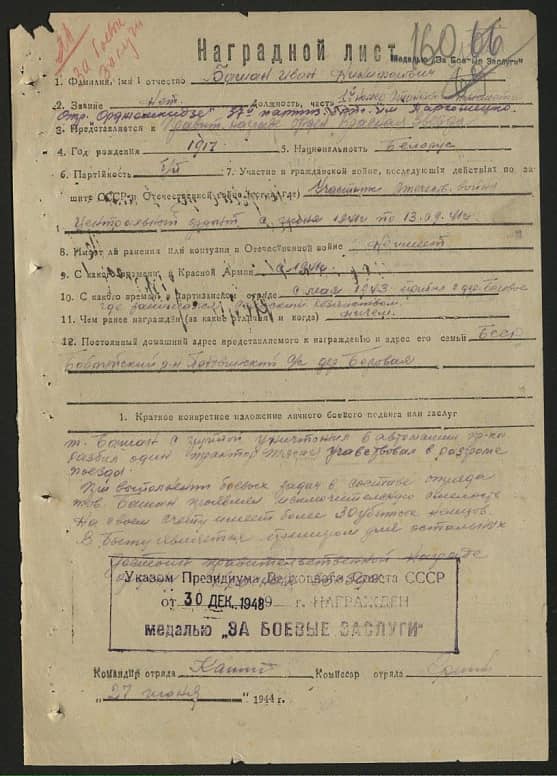 За боевые заслуги
160 66
Наградной лист
Медалью „За Боевые Заслуги"
1. Фамилия, имя и отчество Башан Иван
2. Звание Нет. Должность, часть
Отр. Орджоникидзе
3. Представляется к правит. награде Орден Красная Звезда
4. Год рождения 1917 5. Национальность Белорус
6. Партийность б/п 7. Участие в гражданской войне, последующих действиях по за-
щите СССР и Отечественной войне (где, когда) Участник отечеств. войны
Центральный фронт с июня 1941г по 13.09.41г
8. Имеет ли ранения или контузии в Отечественной войне Не имеет
9. С какого времени в Красной Армии с 1941г
10. С какого времени в партизанском отряде с мая 1943
где занимался сельским хозяйством.
11. Чем ранее награжден (за какие отличия и когда) ничем
12. Постоянный домашний адрес представляемого к награждению и адрес его семьи БССР
р-н с/с дер. Беловая
1. Краткое конкретное изложение личного боевого подвига или заслуг
т. Башан с группой уничтожил 6 автомашин пр-ка
разбил один трактор тягач участвовал в разгроме
поезда.
При выполнении боевых задач в составе отряда
тов. Башан проявлял исключительную смелость
На своем счету имеет более 30 убитых немцев.
В быту является примером для остальных
Достоин правительственной награды
Указом Президиума Верховного Совета СССР
от 30 ДЕК. 1948 г. НАГРАЖДЕН
медалью „ЗА БОЕВЫЕ ЗАСЛУГИ"
Командир отряда Комиссар отряда
„27 июня" 1944 г.